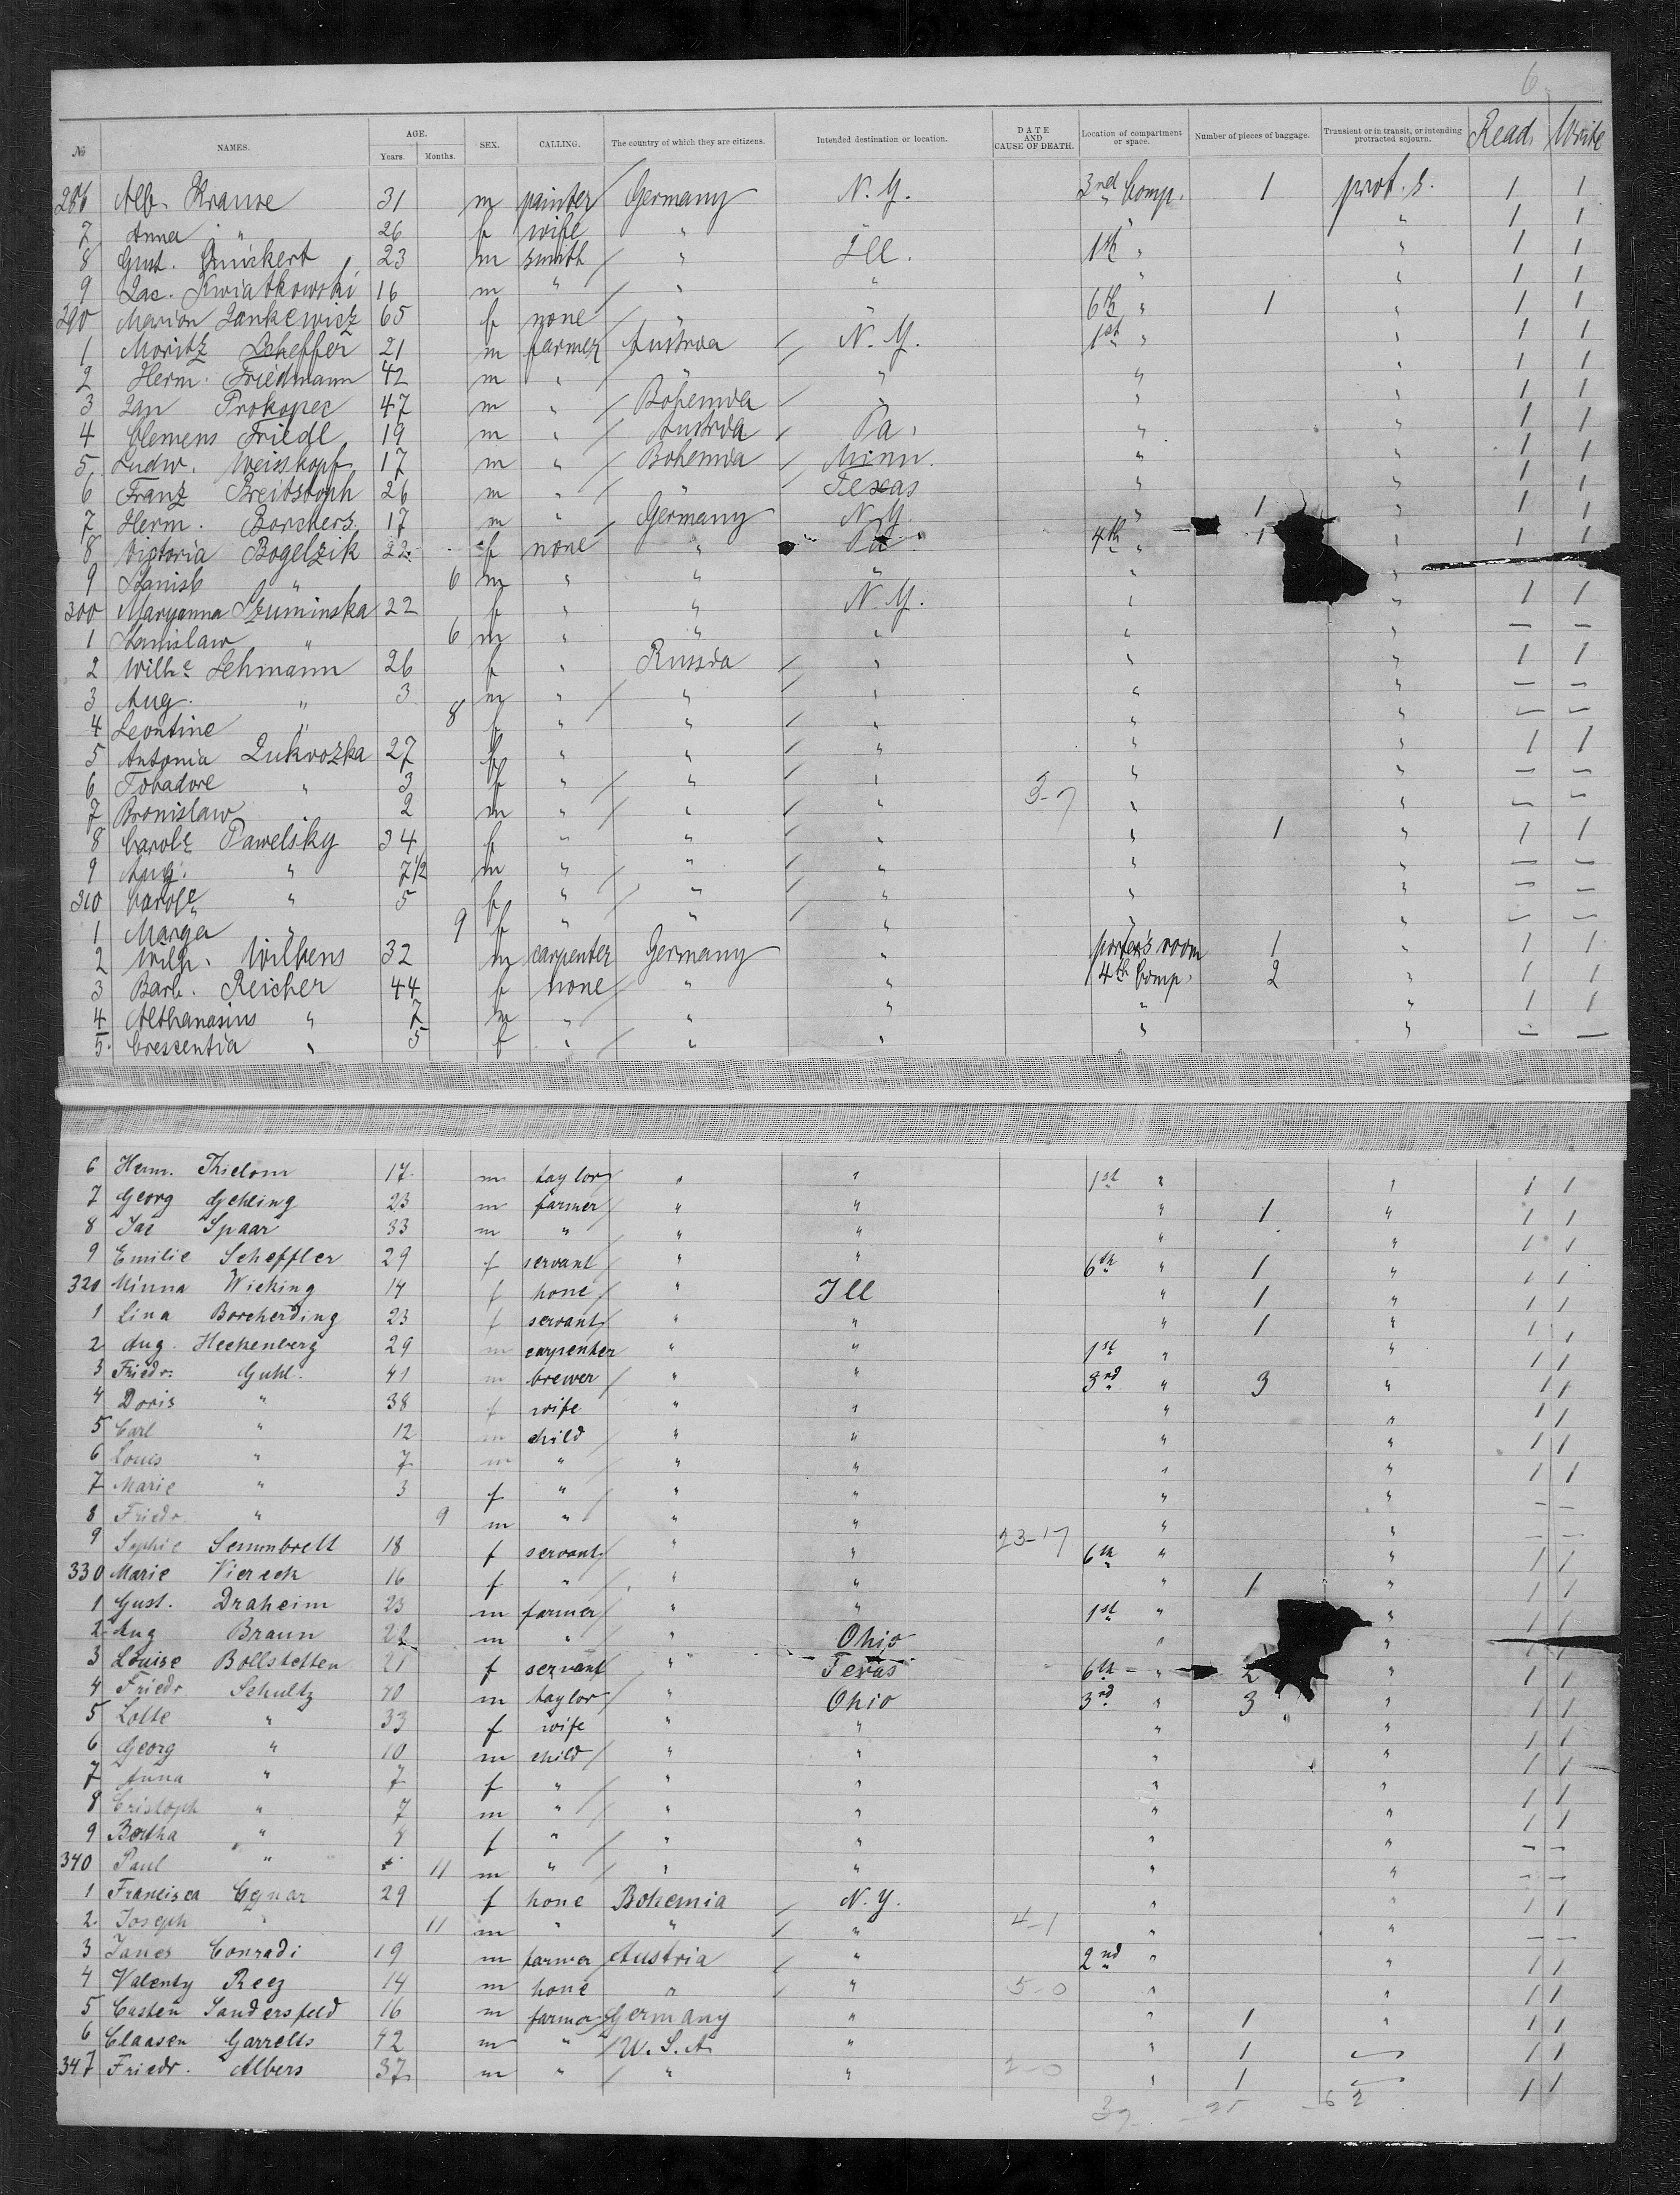 6
№ NAMES. AGE. Years. Months. SEX. CALLING. The country of which they are citizens. Intended destination or location. DATE AND CAUSE OF DEATH. Location of compartment or space. Number of pieces of baggage. Transient or in transit, or intending protracted sojourn. Read Write
286 Alb. Krause 31 m painter Germany N.Y. 3rd Comp. 1 prot. s. 1 1
7 Anna " 26 f wife " " " 1 1
8 Gust. 23 m smith " Ill. 1st " " 1 1
9 Jac. Kwiatkowski 16 m " " " " " 1 1
290 Marion Jankewicz 65 f none " " 6th " 1 " 1 1
1 Moritz Scheffer 21 m farmer Austria N.Y. 1st " " 1 1
2 Herm. Friedmann 42 m " " " " " 1 1
3 Jan Prokopec 47 m " Bohemia " " " 1 1
4 Clemens Friedl 19 m " Austria Pa. " " 1 1
5 Ludw. Weisskopf 17 m " Bohemia Minn. " " 1 1
6 Franz Breitstoph 26 m " " Texas " " 1 1
7 Herm. Borchers 17 m " Germany N.Y. " 1 " 1 1
8 Victoria Bogelzik 22 f none " Pa 4th " 1 " 1 1
9 Stanisl " 6 m " " " " "
300 Maryanna Szuminska 22 f " " N.Y. " " 1 1
1 Stanislaw " 6 m " " " " " — —
2 Wilhe Lehmann 26 f " Russia " " " 1 1
3 Aug. " 3 m " " " " " — —
4 Leontine " 8 f " " " " " — —
5 Antonia Zukvozka 27 f " " " " " 1 1
6 " 3 f " " " " " — —
7 Bronislaw 2 m " " " 3-7 " " — —
8 Carole Pawelsky 34 f " " " " 1 " 1 1
9 Aug. " 7 1/2 m " " " " " — —
310 Carole " 5 f " " " " " — —
1 Marga " 9 f " " " " " — —
2 Wilh. Wilkens 32 m carpenter Germany " porter's room 1 " 1 1
3 Barb. Reicher 44 f none " " 4th Comp. 2 " 1 1
4 Althanasius " 7 m " " " " " 1 1
5. Crescentia " 5 f " " " " " — —
6 Herm. Thielom 17 m taylor " " 1st " " 1 1
7 Georg Gehling 23 m farmer " " " 1 " 1 1
8 Jac Spaar 33 m " " " " " 1 1
9 Emilie Scheffler 29 f servant " " 6th " 1 " 1 1
320 Minna Wieking 14 f none " Ill " 1 " 1 1
1 Lina Borcherding 23 f servant " " " 1 " 1 1
2 Aug. Heckenberg 29 m carpenter " " 1st " " 1 1
3 Friedr. Guhl. 41 m brewer " " 3rd " 3 " 1 1
4 Doris " 38 f wife " " " " 1 1
5 Carl " 12 m child " " " " 1 1
6 Louis " 7 m " " " " " 1 1
7 Marie " 3 f " " " " " — —
8 Friedr. " 9 m " " " " " — —
9 Sophie Semmbrett 18 f servant " " 23-17 6th " " 1 1
330 Marie Viereck 16 f " " " " 1 " 1 1
1 Gust. Draheim 23 m farmer " " 1st " " 1 1
2 Aug Braun 22 m " " Ohio " " 1 1
3 Louise Bollstetten 21 f servant " Texas 6th " 2 " 1 1
4 Friedr Schultz 40 m taylor " Ohio 3rd " 3 " 1 1
5 Lotte " 33 f wife " " " " " 1 1
6 Georg " 10 m child " " " " 1 1
7 Anna " 7 f " " " " " 1 1
8 Cristoph " 7 m " " " " " 1 1
9 Bertha " f " " " " " — —
340 Paul " 11 m " " " " " — —
1 Francisca 29 f none Bohemia N.Y. " " 1 1
2. Joseph " 11 m " " " 4-1 " " — —
3 Janes Conradi 19 m farmer Austria " 2nd " " 1 1
4 Valenty Reez 14 m none " " 5-0 " " 1 1
5 Casten Sandersfeld 16 m farmer Germany " " 1 " 1 1
6 Claasen Garrells 42 m " U.S.A. " " 1 1 1
347 Friedr. Albers 37 m " " " 2-0 " 1 1 1